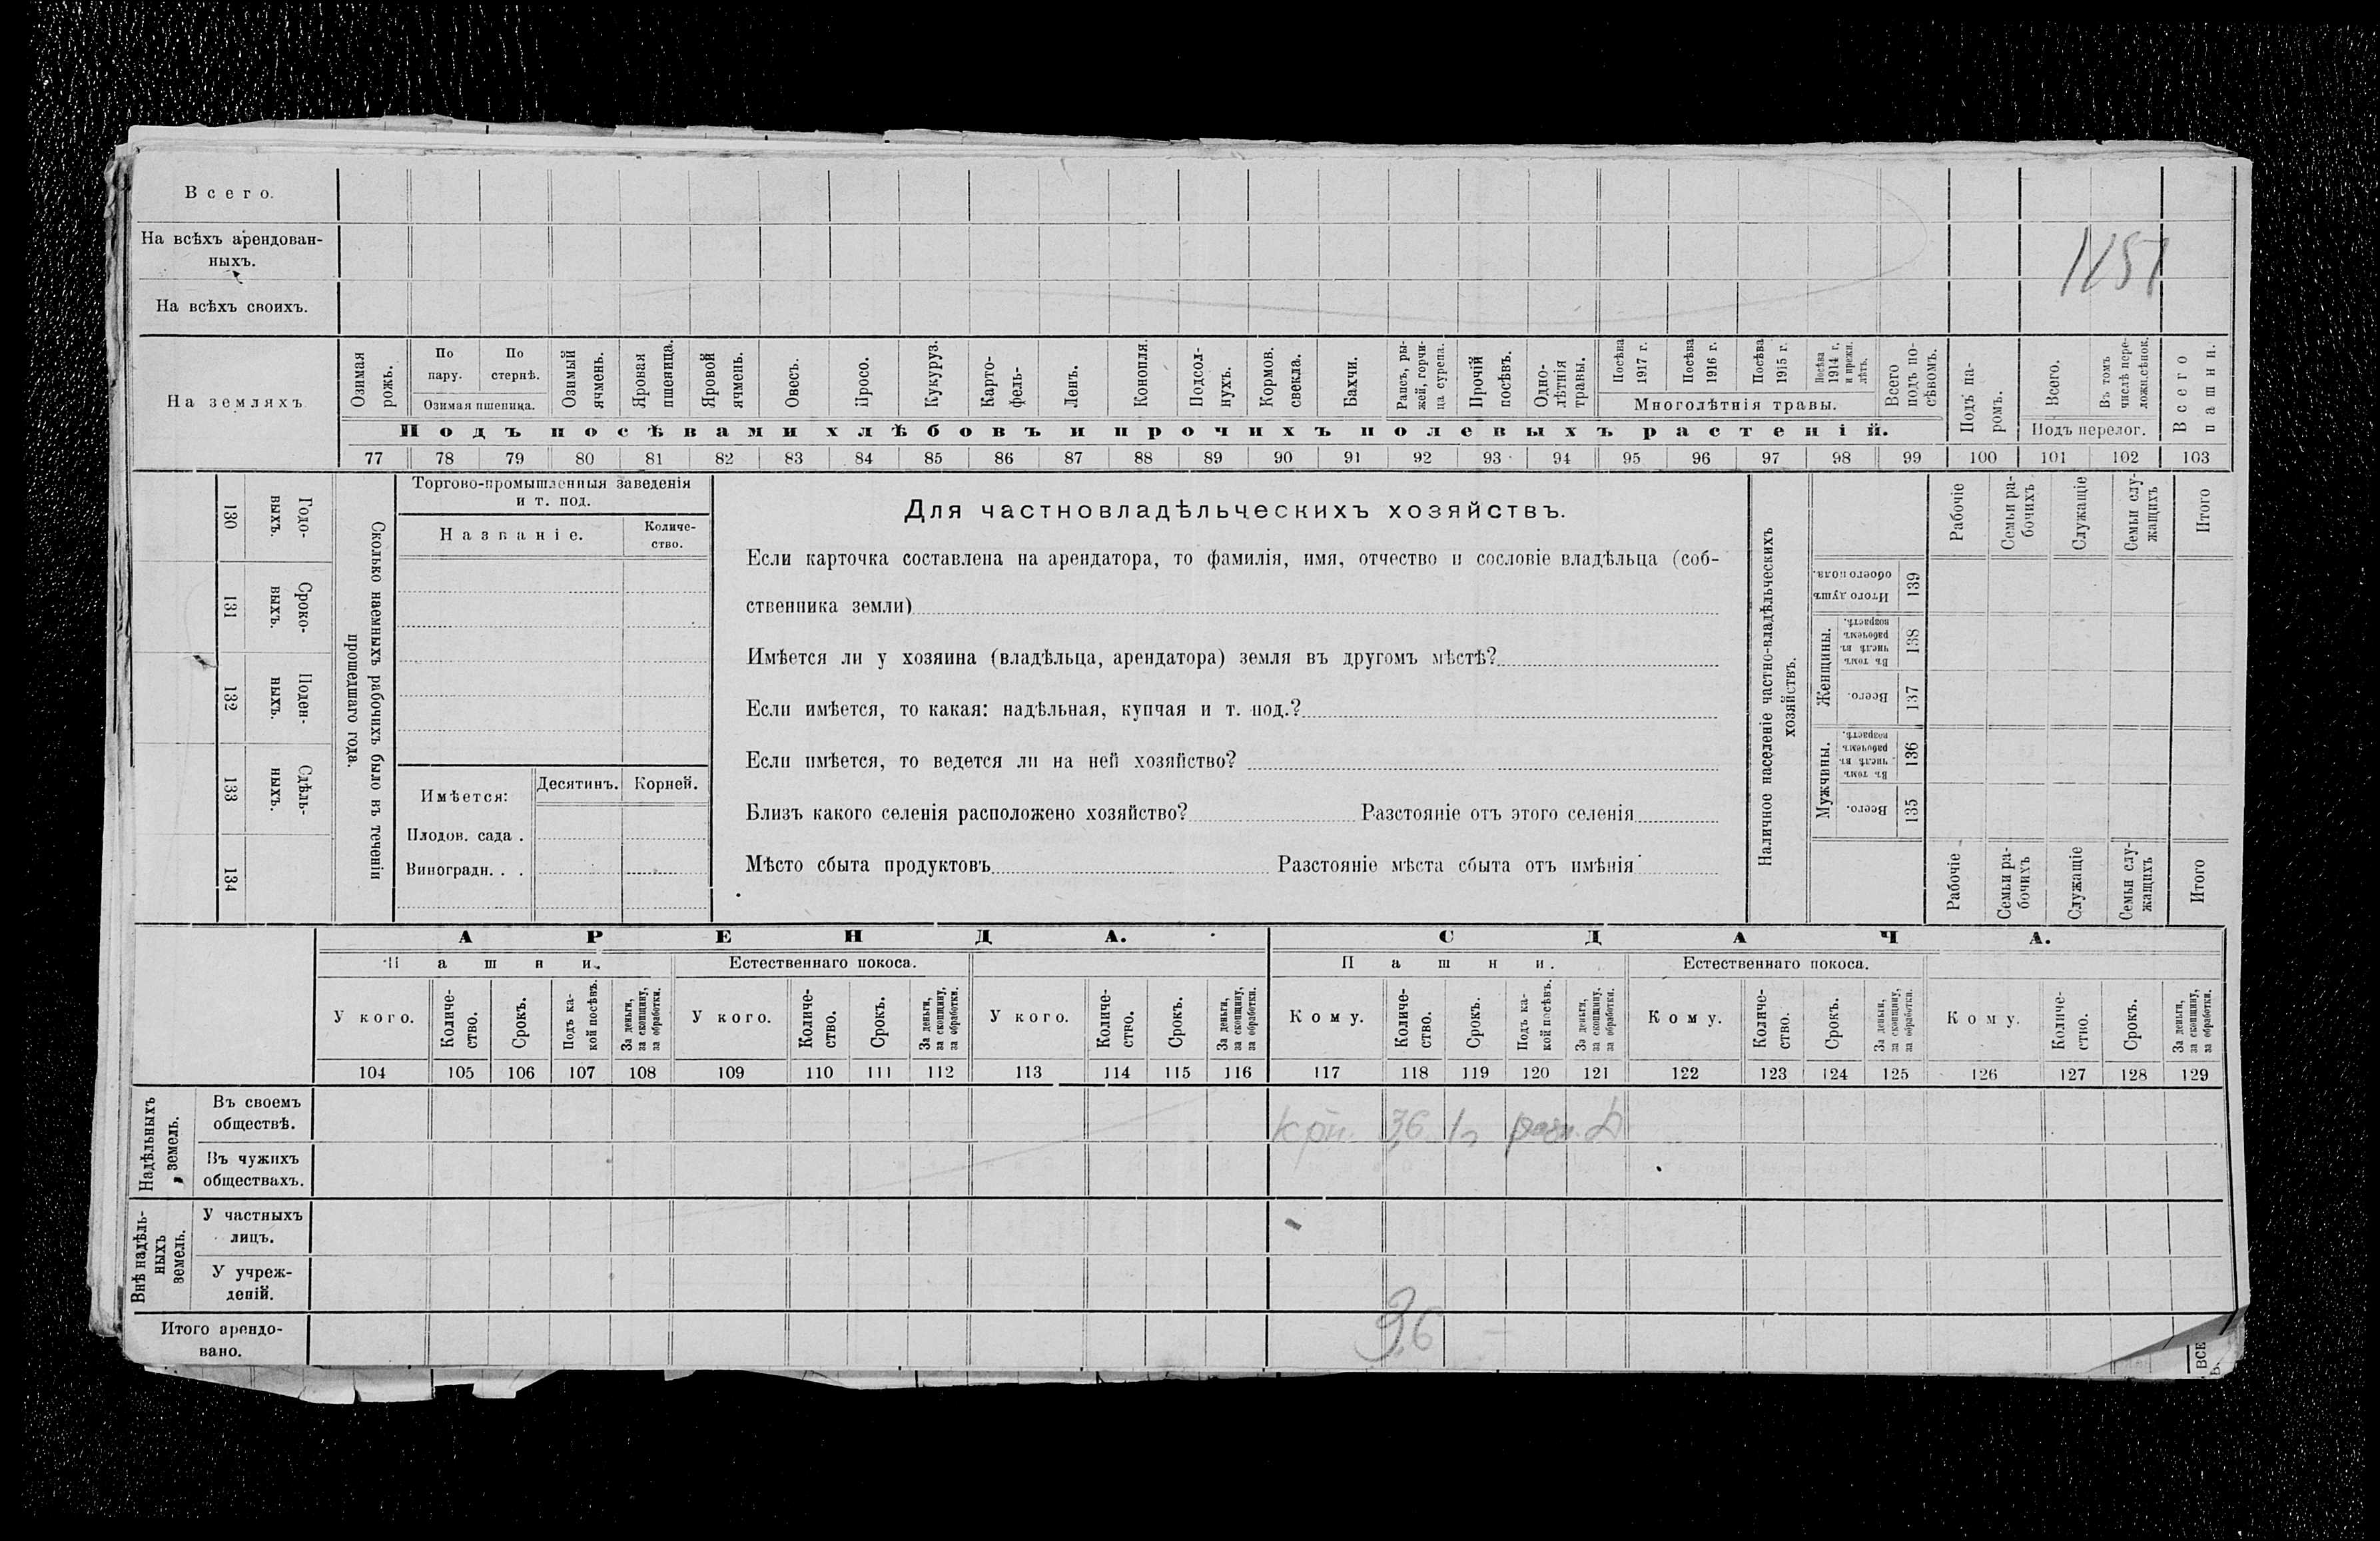 Всего.
На всѣхъ арендован-
ныхъ.
1451
На всѣхъ своихъ.
На земляхъ
Озимая рожь.
По пару.
По стернѣ.
Озимая пшеница.
Озимый ячмень.
Яровая пшеница.
Яровой ячмень.
Овесъ.
Просо.
Кукуруз.
Карто-фель-
Ленъ.
Конопля.
Подсол-нухъ.
Кормов. свекла.
Бахчи.
Рапсъ, ры-жей, горчи-ца сурепа.
Прочій посѣвъ.
Одно-лѣтнія травы.
Посѣва 1917 г.
Посѣва 1916 г.
Посѣва 1915 г.
Посѣва 1914 г. и прежн. лѣтъ.
Многолѣтнія травы.
Всего подъ по-сѣвомъ.
Подъ па-ромъ.
Всего.
Въ томъ числѣ пере-ложн.сѣнок.
Подъ перелог.
Всего пашни.
Подъ посѣвами хлѣбовъ и прочихъ полевыхъ растеній.
77 78 79 80 81 82 83 84 85 86 87 88 89 90 91 92 93 94 95 96 97 98 99 100 101 102 103
130 Годо-выхъ.
131 Сроко-выхъ.
132 Поден-ныхъ.
133 Сдѣль-ныхъ.
134
Сколько наемныхъ рабочихъ было въ теченіи
прошедшаго года.
Торгово-промышленныя заведенія
и т. под.
Названіе.
Количе-ство.
Имѣется:
Десятинъ.
Корней.
Плодов. сада .
Виноградн. . .
Для частновладѣльческихъ хозяйствъ.
Если карточка составлена на арендатора, то фамилія, имя, отчество и сословіе владѣльца (соб-
ственника земли)
Имѣется ли у хозяина (владѣльца, арендатора) земля въ другомъ мѣстѣ?
Если имѣется, то какая: надѣльная, купчая и т. под.?
Если имѣется, то ведется ли на ней хозяйство?
Близъ какого селенія расположено хозяйство? Разстояніе отъ этого селенія
Мѣсто сбыта продуктовъ Разстояніе мѣста сбыта отъ имѣнія
Наличное населеніе частно-владѣльческихъ
хозяйствъ.
Рабочіе
Семьи ра-бочихъ
Служащіе
Семьи слу-жащихъ
Итого
Итого душъ обоего пола. 139
Женщины.
Въ томъ числѣ въ рабочемъ возрастѣ. 138
Всего. 137
Мужчины.
Въ томъ числѣ въ рабочемъ возрастѣ. 136
Всего. 135
Рабочіе
Семьи ра-бочихъ
Служащіе
Семьи слу-жащихъ
Итого
АРЕНДА.
СДАЧА.
Пашни.
Естественнаго покоса.
Пашни.
Естественнаго покоса.
У кого.
Количе-ство.
Срокъ.
Подъ ка-кой посѣвъ.
За деньги, за скопщину, за обработки.
У кого.
Количе-ство.
Срокъ.
За деньги, за скопщину, за обработки.
У кого.
Количе-ство.
Срокъ.
За деньги, за скопщину, за обработки.
Кому.
Количе-ство.
Срокъ.
Подъ ка-кой посѣвъ.
За деньги, за скопщину, за обработки.
Кому.
Количе-ство.
Срокъ.
За деньги, за скопщину, за обработки.
Кому.
Количе-ство.
Срокъ.
За деньги, за скопщину, за обработки.
104 105 106 107 108 109 110 111 112 113 114 115 116 117 118 119 120 121 122 123 124 125 126 127 128 129
Надѣльныхъ земель.
Въ своемъ
обществѣ.
36
Въ чужихъ
обществахъ.
Внѣ надѣль-ныхъ земель.
У частныхъ
лицъ.
У учреж-
деній.
Итого арендо-
вано.
36
ВСЕ